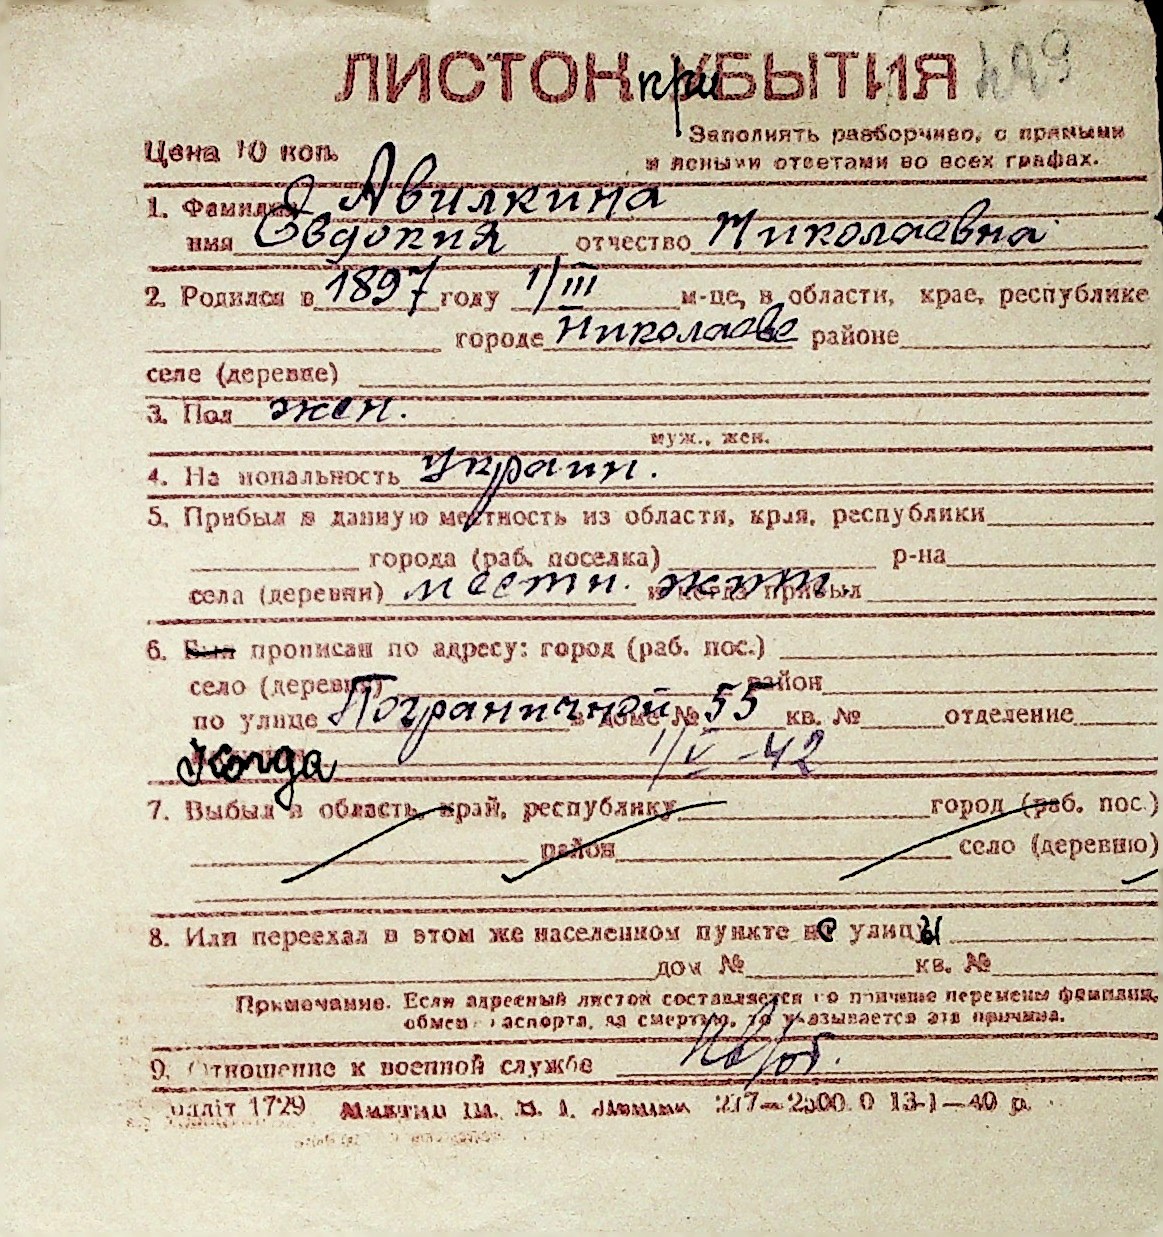 ЛИСТОК при УБЫТИЯ 499
Заполнять разборчиво, с прямыми
Цена 10 коп.
и ясными ответами во всех графах.
1. Фамилия Авилкина
имя Евдокия отчество Николаевна
2. Родился в 1897 году 1/III м-це, в области, крае, республике
городе Николаеве районе
селе (деревне)
3. Пол жен.
муж., жен.
4. Национальность Украин.
5. Прибыл в данную местность из области, края, республики
города (раб. поселка) р-на
села (деревни) местн. жит. и когда прибыл
6. Был прописан по адресу: город (раб. пос.)
село (деревня) район
по улице Пограничной в доме № 55 кв. № отделение
Когда 1/V-42
7. Выбыл в область, край, республику город (раб. пос.)
район село (деревню)
8. Или переехал в этом же населенном пункте с улицы
дом № кв. №
Примечание. Если адресный листок составляется по причине перемены фамилии,
обмен паспорта, за смертью, то указывается эта причина.
9. Отношение к военной службе
1729 217—2500.0 13-1—40 р.